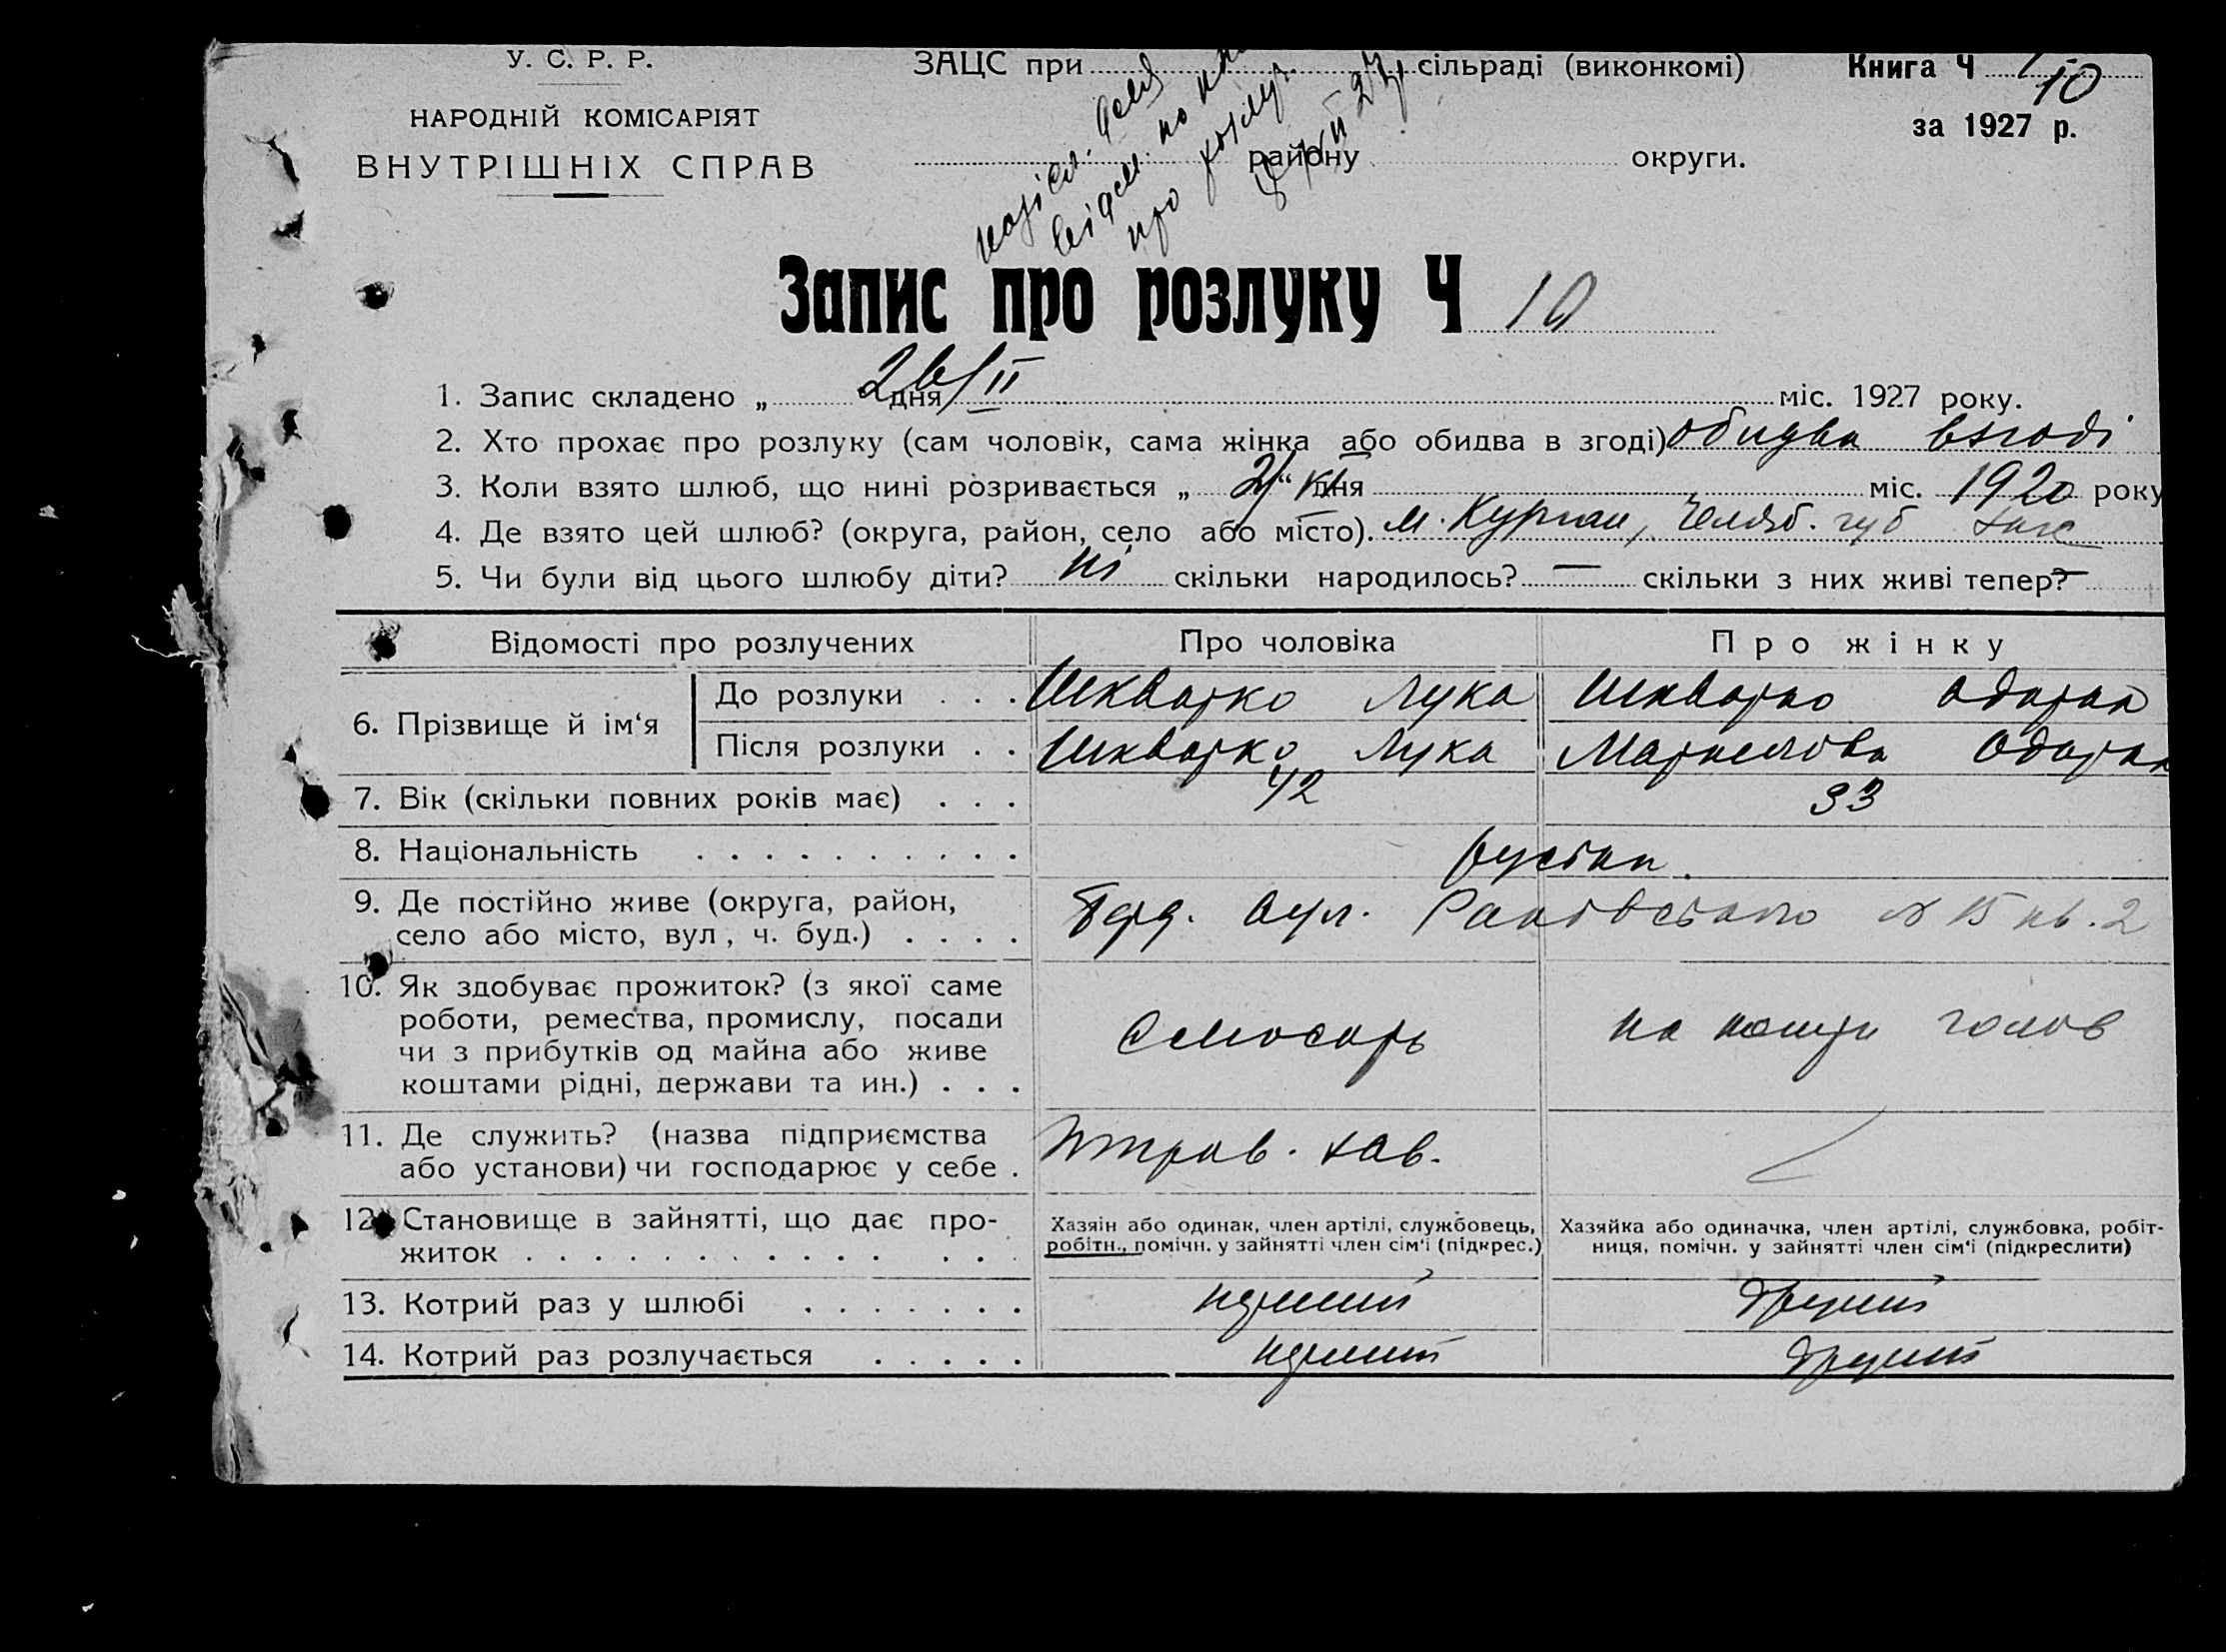 У. С. Р. Р.
НАРОДНІЙ КОМІСАРІЯТ
ВНУТРІШНІХ СПРАВ
ЗАЦС при сільраді (виконкомі)
району округи.
Книга Ч
10
за 1927 р.
Запис про розлуку Ч 10
1. Запис складено „ 26/II дня міс. 1927 року.
2. Хто прохає про розлуку (сам чоловік, сама жінка або обидва в згоді) обидва взгоді
3. Коли взято шлюб, що нині розривається „ “ дня міс. 1920 року
4. Де взято цей шлюб? (округа, район, село або місто). м. Курган, Челяб. губ
5. Чи були від цього шлюбу діти? ні скільки народилось? — скільки з них живі тепер? —
Відомості про розлучених Про чоловіка Про жінку
6. Прізвище й ім‘я
До розлуки . . . Шкварко Лука Шкварко Одарка
Після розлуки . . Шкварко Лука Одарка
7. Вік (скільки повних років має) . . . 42 33
8. Національність . . . . . . . . . .
9. Де постійно живе (округа, район,
село або місто, вул, ч. буд.) . . . . вул. Раковського № 15 кв. 2
10. Як здобуває прожиток? (з якої саме
роботи, ремества, промислу, посади
чи з прибутків од майна або живе
коштами рідні, держави та ин.) . . . Слюсарь на кошти
11. Де служить? (назва підприємства
або установи) чи господарює у себе . зав.
12. Становище в зайнятті, що дає про-
житок . . . . . . . . . . . . . .
Хазяін або одинак, член артілі, службовець,
робітн., помічн. у зайнятті член сім‘і (підкрес.)
Хазяйка або одиначка, член артілі, службовка, робіт-
ниця, помічн. у зайнятті член сім‘і (підкреслити)
13. Котрий раз у шлюбі . . . . . . . перший другий
14. Котрий раз розлучається . . . . . перший другий